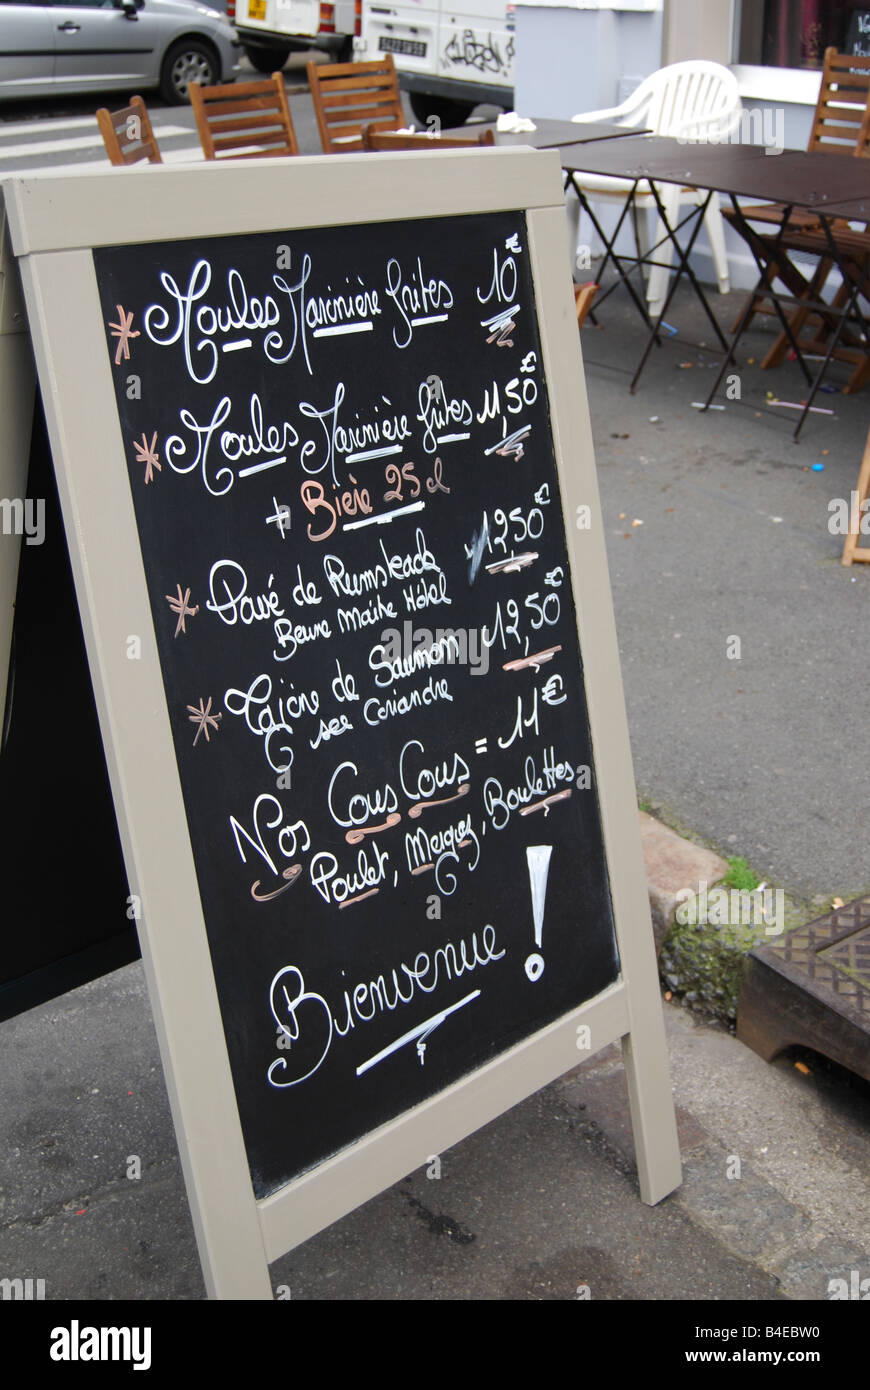 * Moules Marinière frites 10€
* Moules Marinière frites 11,50€
+ Bière 25 cl
* Pavé de Rumsteack 12,50€
Beurre Maître Hôtel
* Tajine de Saumon 12,50€
sce Coriandre
Nos Cous Cous = 11€
Poulet, Merguez, Boulettes
Bienvenue !
alamy
Image ID: B4EBW0
www.alamy.com